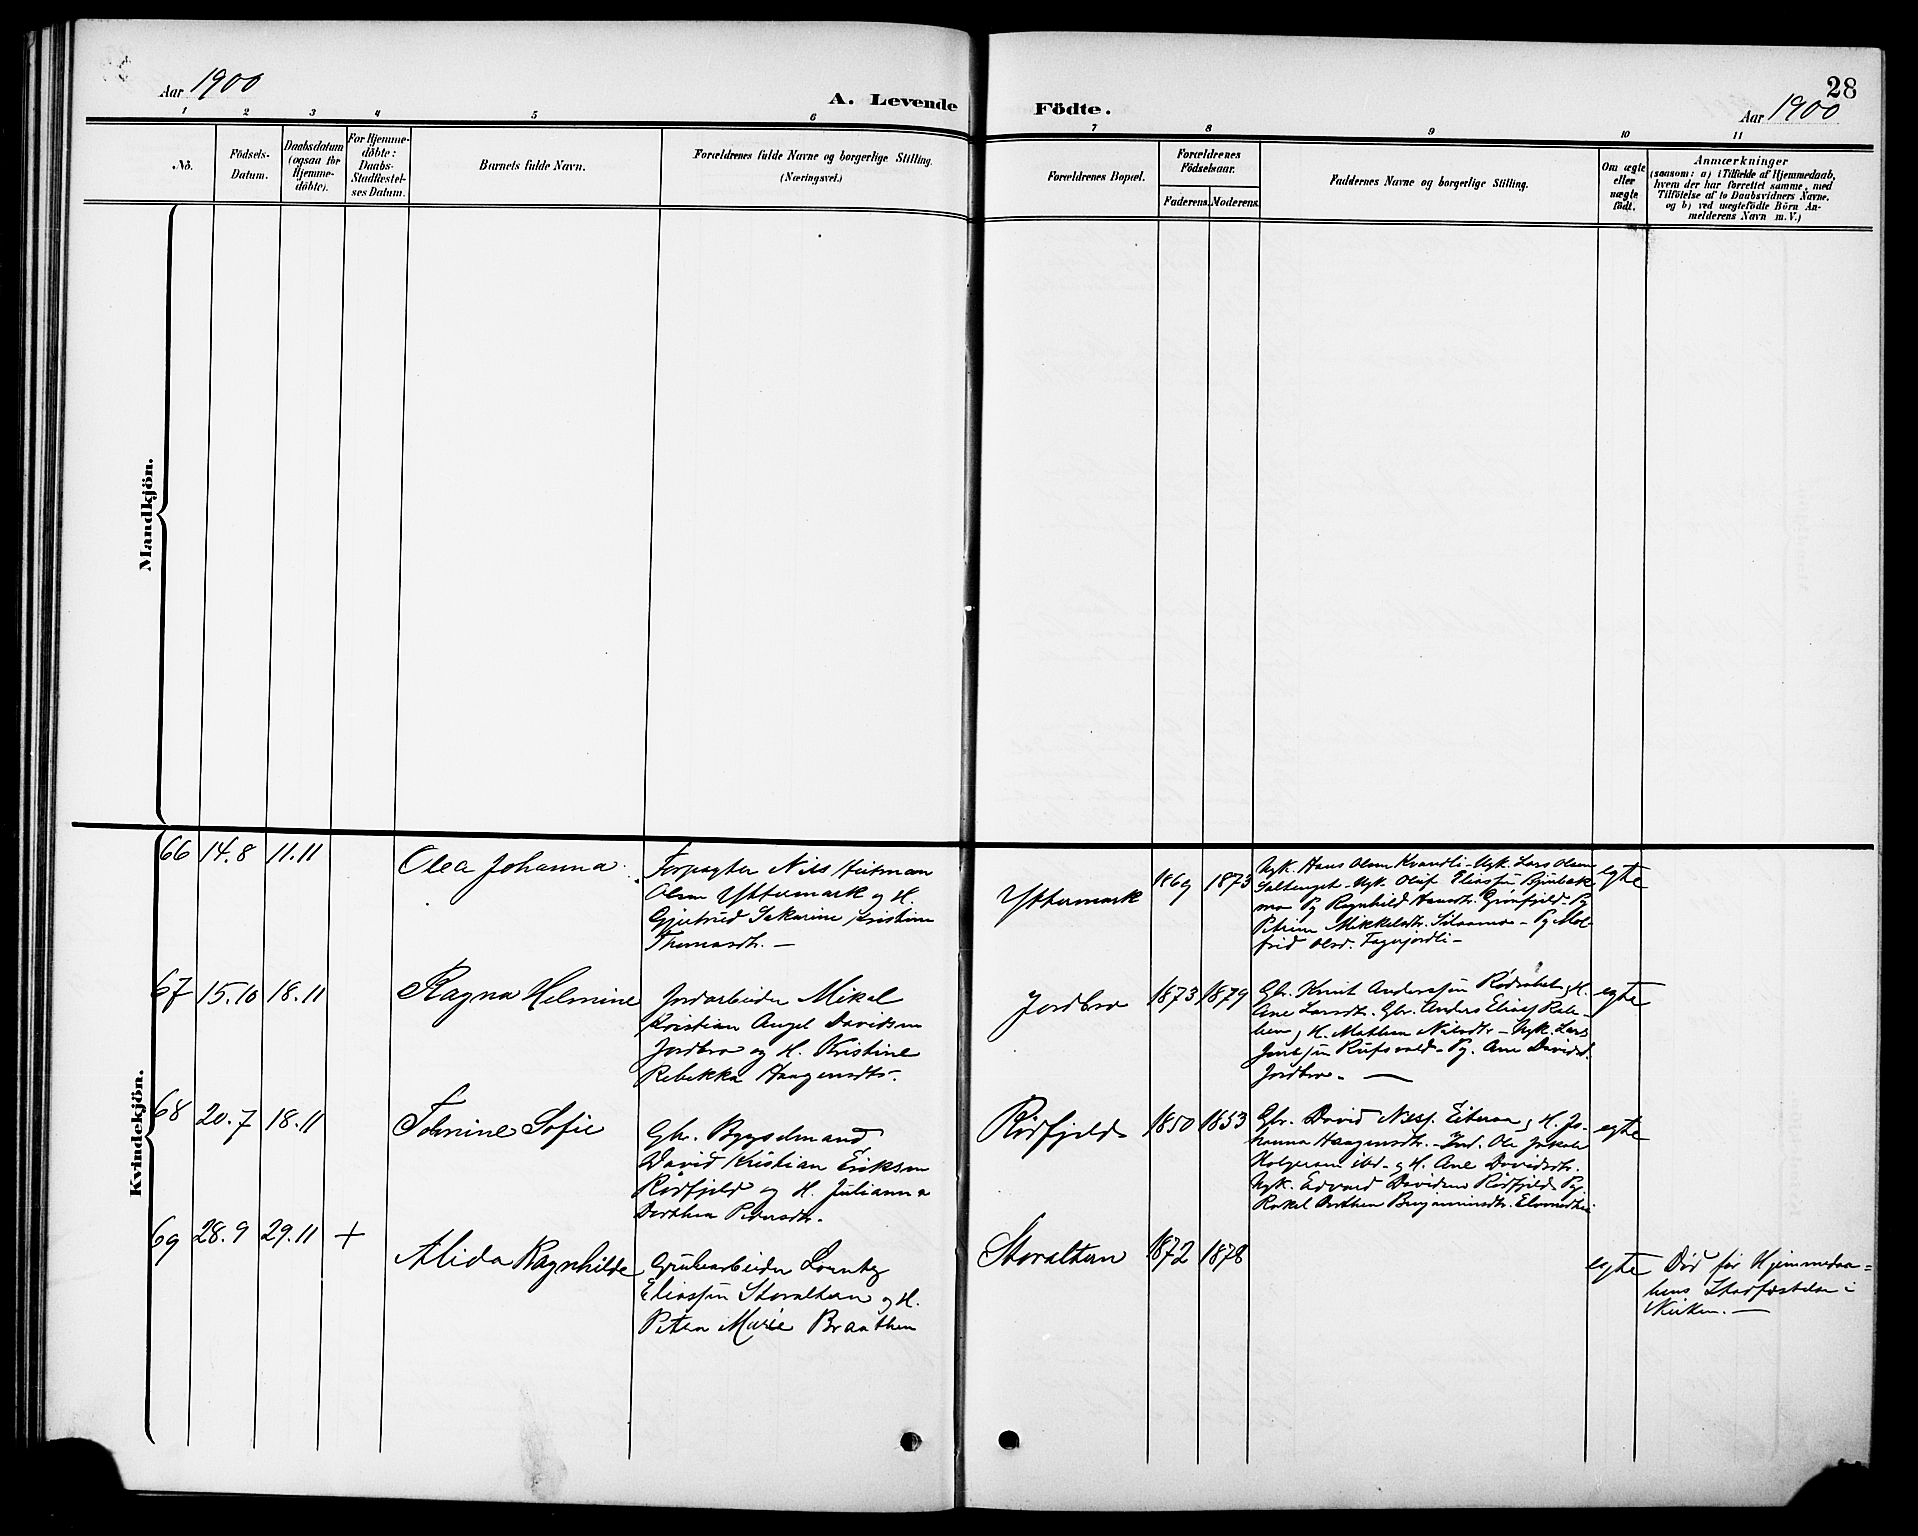 Aar 1900
A. Levende Födte.
28
Aar 1900
1 2 3 4 5 6 7 8 9 10 11
No.
Födsels-
Datum.
Daabsdatum
(ogsaa for
Hjemme-
döbte).
For Hjemme-
döbte:
Daabs-
Stadfæstel-
ses Datum.
Barnets fulde Navn.
Forældrenes fulde Navne og borgerlige Stilling.
(Næringsvei.)
Forældrenes Bopæl.
Forældrenes
Födselsaar.
Faderens. Moderens.
Faddernes Navne og borgerlige Stilling.
Om ægte
eller
uægte
födt.
Anmærkninger
(saasom: a) i Tilfælde af Hjemmedaab,
hvem der har forrettet samme, med
Tilföielse af to Daabsvidners Navne.
og b) ved uægtefödte Börn An-
melderens Navn m. V.)
Mandkjön.
Kvindekjön.
66 14.8 11.11
Olea Johanna
Forpagter Nils Hitman
Olsen Yttermark og H.
Gjertrud Sakarine Kristine
Thomasdtr. —
Yttermark
1869 1873
Ugk. Hans Olsen Kvandli - Ugk. Lars Olsen
Ugk. Oluf Eliassen
mo Pg Ragnhild Hansdtr. Grönfjeld - P
Petrine Mikkelsdtr. - Pg Mol-
frid Olsd.
egte
67 15.10 18.11
Ragna Helmine
Jordarbeider Mikal
Kristian Angel Davidsen
Jordbro og H. Kristine
Rebekka Haagensdtr.
Jordbro
1873 1879
Gbr. Knut Anderssen H.
Ane Larsdtr. Gbr. Anders Eliass
H. Mathea Nilsdtr - Ugk. Lars
Pg. Ane Davidsd.
Jordbro - —
egte
68 20.7 18.11
Tolmine Sofie
Gbr. Bygselmand
David Kristian Eriksen
Rödfjeld og H. Julianna
Dorthea Pedersdtr.
Rödfjeld
1850 1853
Gbr. David Niss. Eiteraa, H. Jo-
hanna Haagensdtr. - Ind. Ole Jakob
Holgersen ibd. - og H. Ane Davidsdtr.
Ugk. Edvard Davidsen Rödfjeld Pg
Rakel Dorthea Benjaminsdtr.
egte
69 28.9 29.11 +
Alida Ragnhilde
Grubearbeider Lorentz
Eliassen Storalteren og H.
Petra Marie Braathen
Storalteren
1872 1878
egte
Död för Hjemmedaa=
bens Stadfæstelse i
Kirken. —